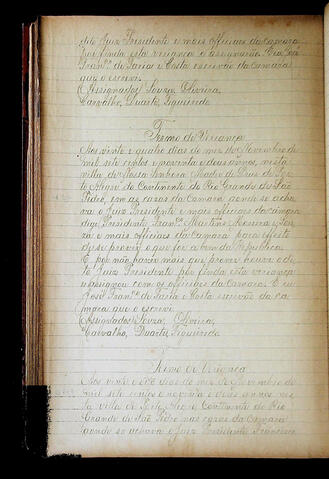 dito Juiz Presidente e mais officiaes da Camara
houve por finda esta veriança e assignarão. E eu José
Franco. de Faria e Costa escrivão da Camara
que o escrevi.
(Assignados) Souza, Oliveira,
Carvalho, Duarte, Figueiredo
Termo de Veriança
Aos vinte e quatro dias do mez de Novembro de
mil sete centos e noventa e dous annos, nesta
villa de Nossa Senhora Madre de Deus de Por
to Alegre do Continente do Rio Grande de São
Pedro, em as casas da Camara aonde se acha
va o Juiz Presidente e mais officiaes da Camara
digo Presidente Francisco Martins
e mais officiaes da Camara
para prover o que for a bem da Republica.
E por não haver mais que prover houve o di
to Juiz Presidente por finda esta veriança
e assignou com os officiaes da Camara. E eu
José Franco. de Faria e Costa escrivão da Ca
mara que o escrevi.
(Assignados) Souza, Oliveira,
Carvalho, Duarte, Figueiredo
Termo de Veriança
Aos vinte e oito dias do mez de Novembro de
mil sete centos e noventa e dous annos nes
ta villa de Porto Alegre Continente do Rio
Grande de São Pedro nas casas da Camara
aonde se achava o Juiz Presidente Francisco